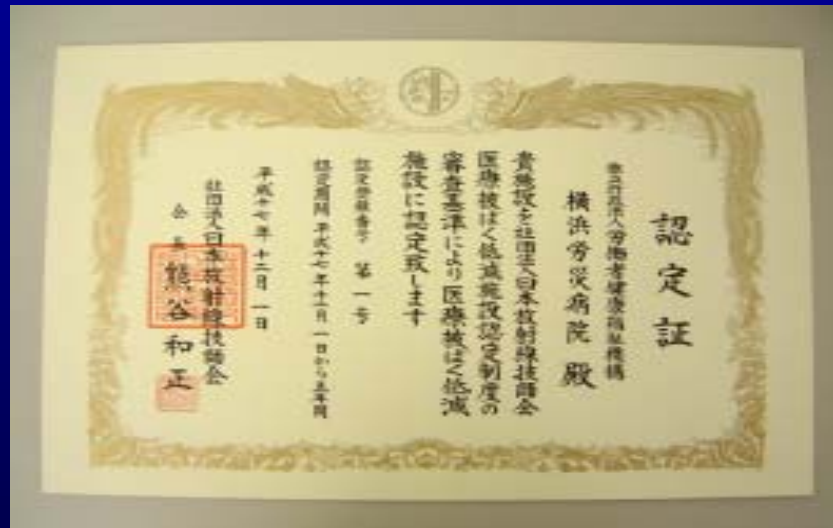 認定証
独立行政法人労働者健康福祉機構
横浜労災病院 殿
貴施設を社団法人日本放射線技師会
医療被ばく低減施設認定制度の
審査基準により医療被ばく低減
施設に認定致します
認定登録番号 第一号
認定期間 平成十七年十二月一日から五年間
平成十七年十二月一日
社団法人日本放射線技師会
会長 熊谷和正